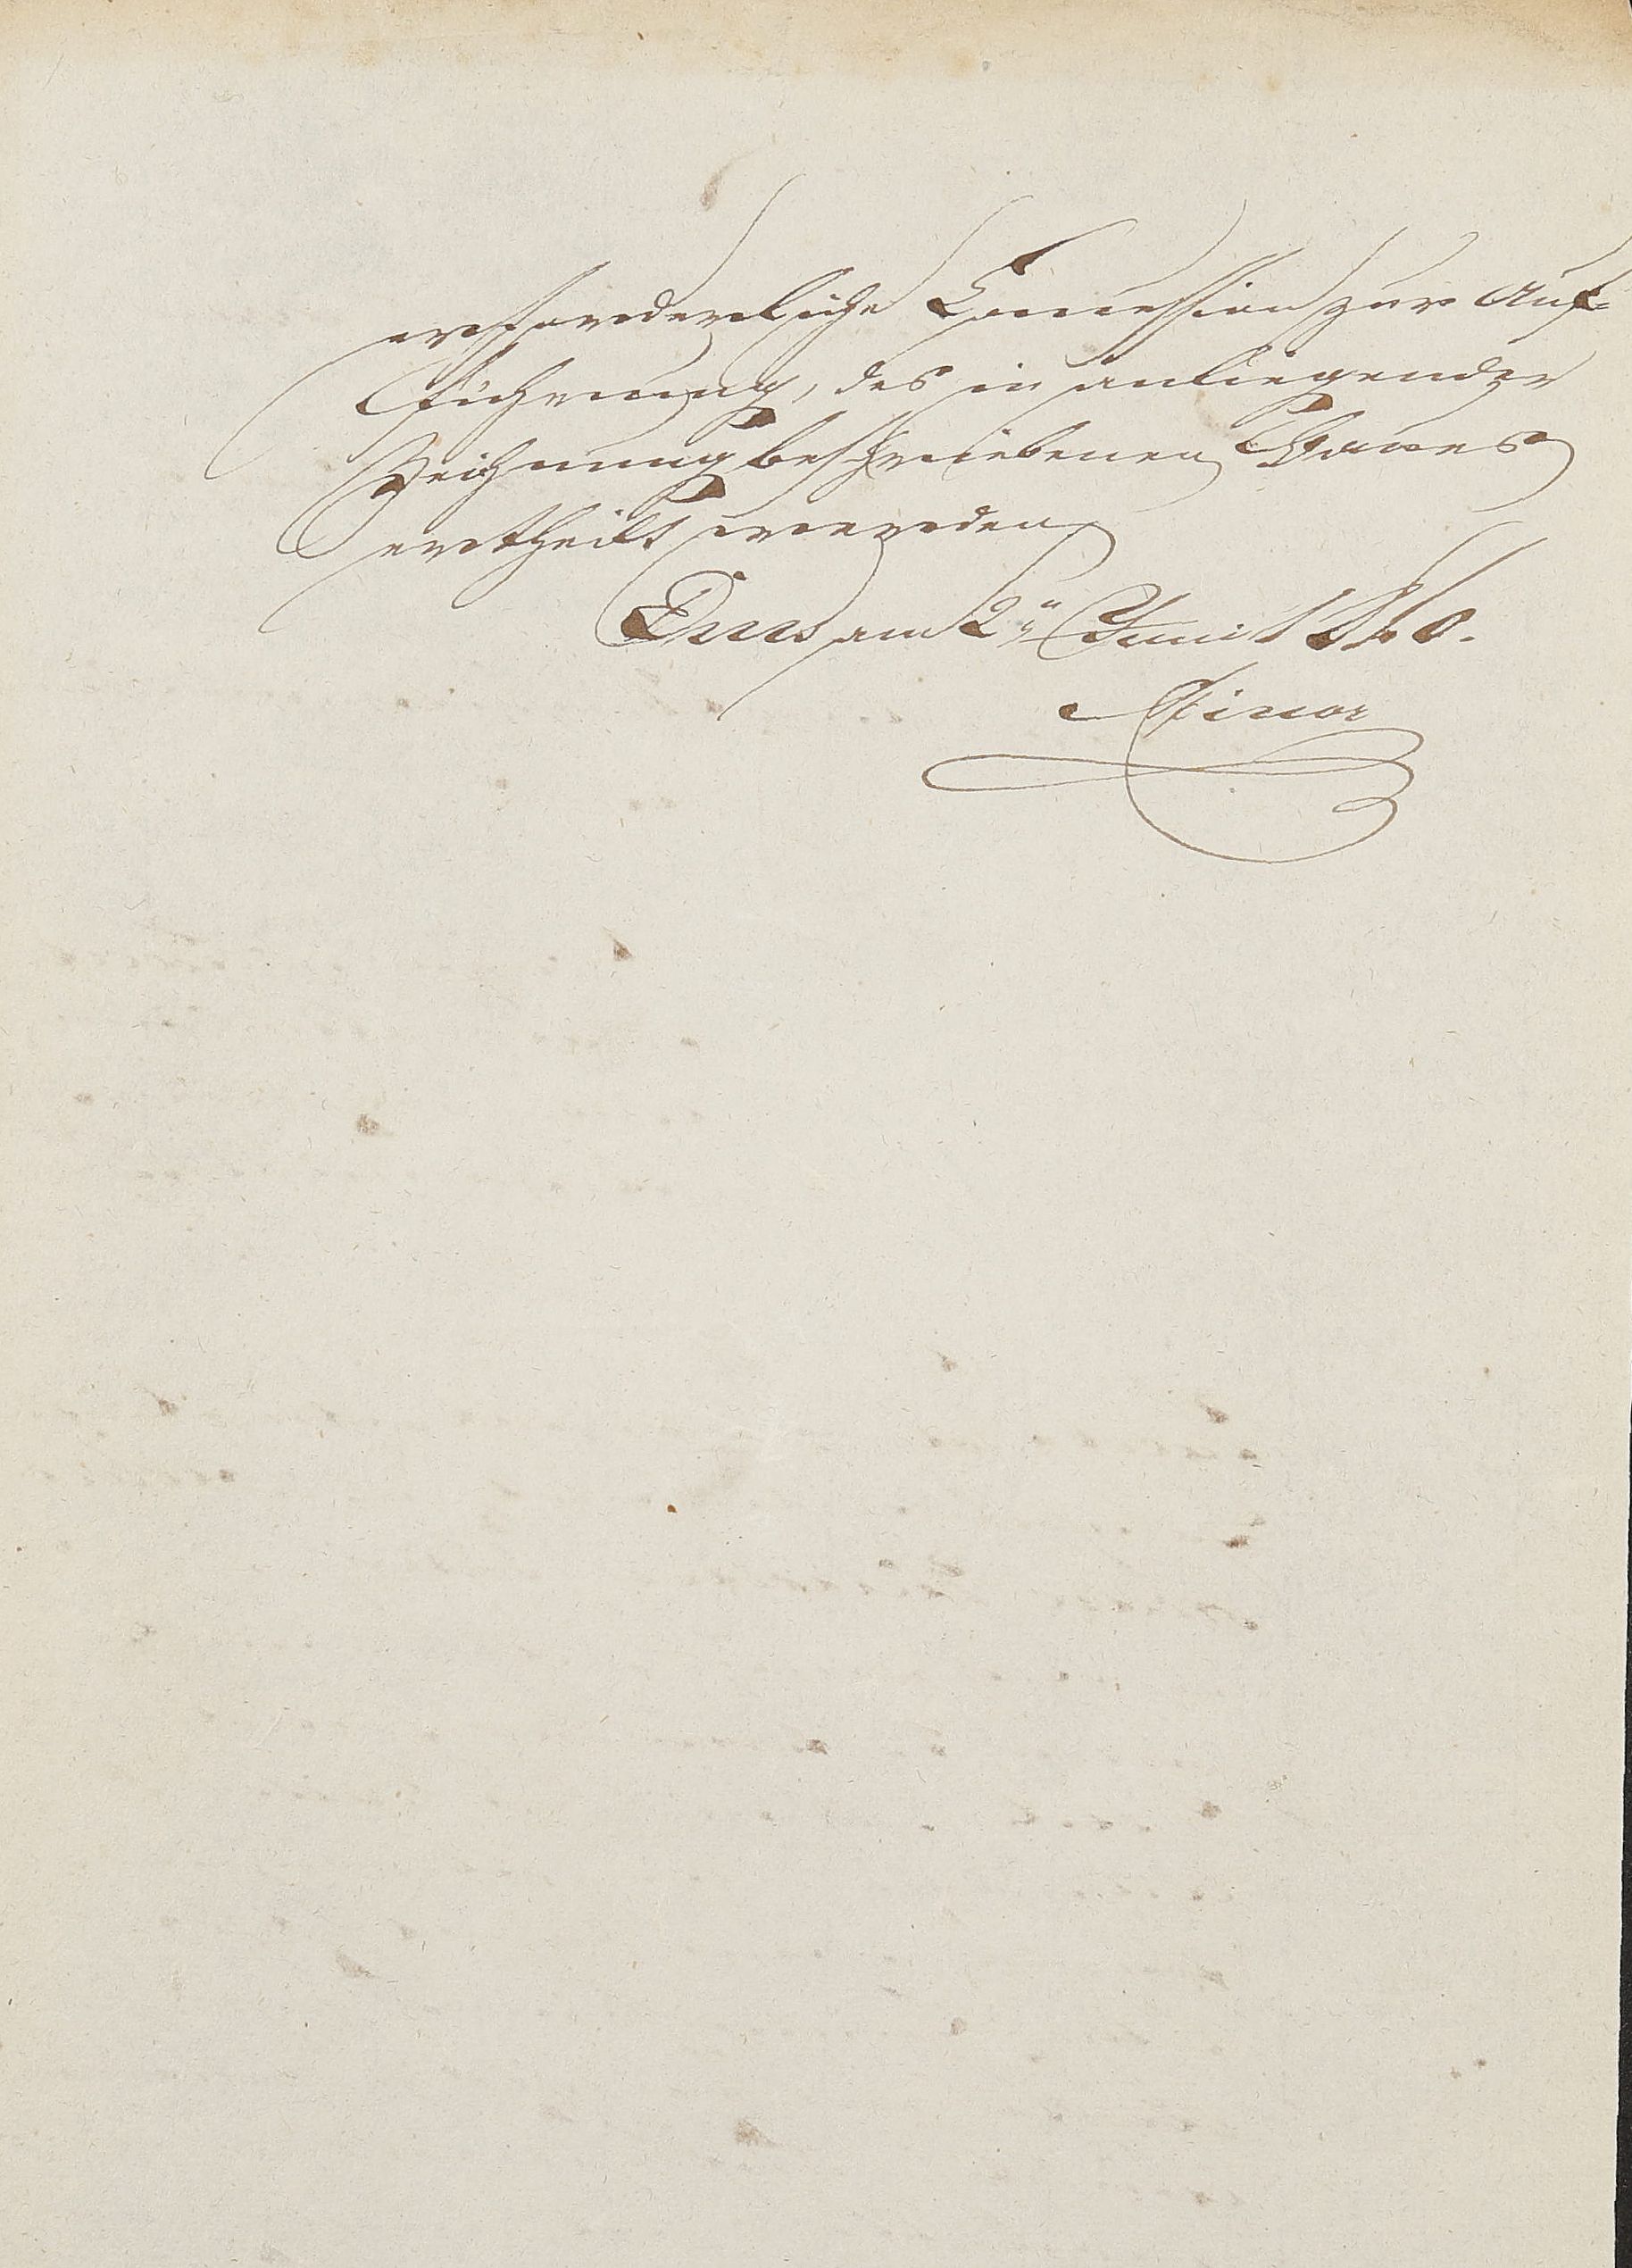 erforderliche Concession zur Auf-
führung, des in anliegender
Zeichnung beschriebenen Baues
ertheilt werden
Ems am 2n Juni 18